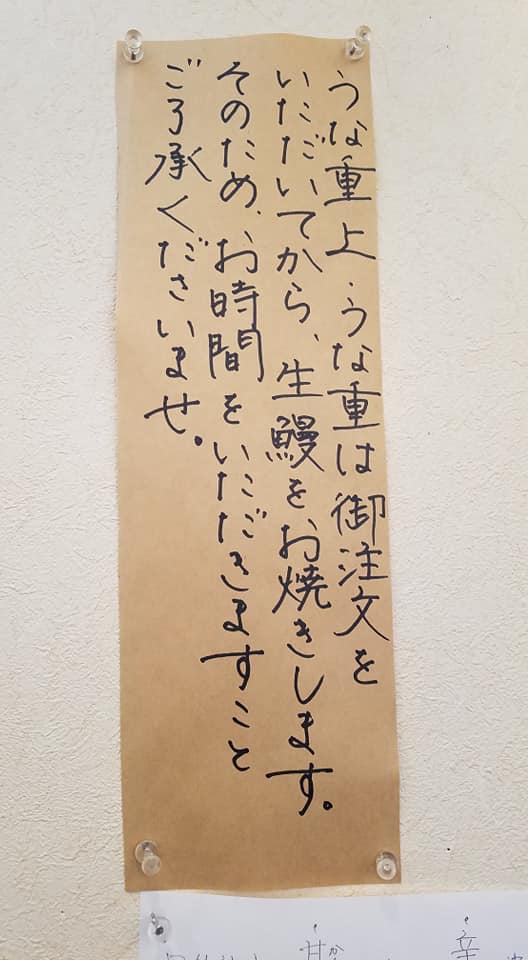 うな重上・うな重は御注文を
いただいてから、生鰻をお焼きします。
そのため、お時間をいただきますこと
ご了承くださいませ。
甘
辛